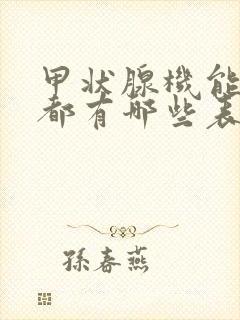 甲状腺機能
都有哪些表
孫春燕